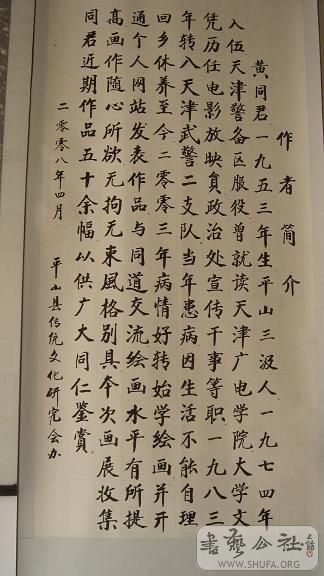 作者简介
黄同君一九五三年生平山三汲人一九七四年
入伍天津警备区服役曾就读天津广电学院大学文
凭历任电影放映員政治处宣传干事等职一九八三
年转入天津武警二支队当年患病因生活不能自理
回乡休养至今二零零三年病情好转始学绘画并开
通个人网站发表作品与同道交流绘画水平有所提
高画作随心所欲无拘无束風格别具今次画展收集
同君近期作品五十余幅以供广大同仁鉴赏
二零零八年四月 平山县传统文化研究会办
书艺公社
WWW.SHUFA.ORG